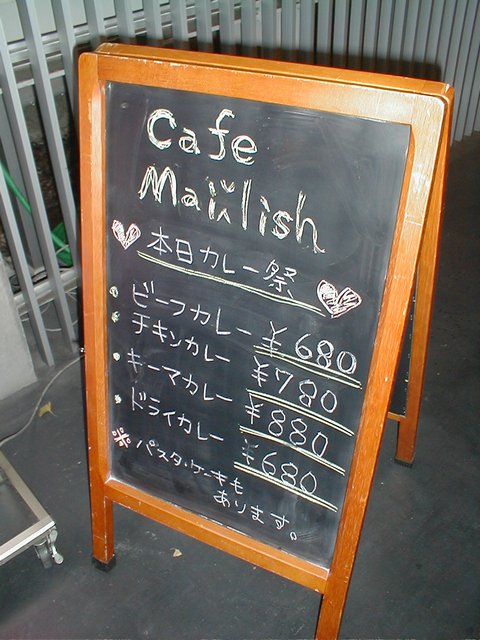 Cafe
Mailish
本日カレー祭
ビーフカレー ¥680
チキンカレー ¥780
キーマカレー ¥880
ドライカレー ¥680
※パスタ・ケーキも
あります。